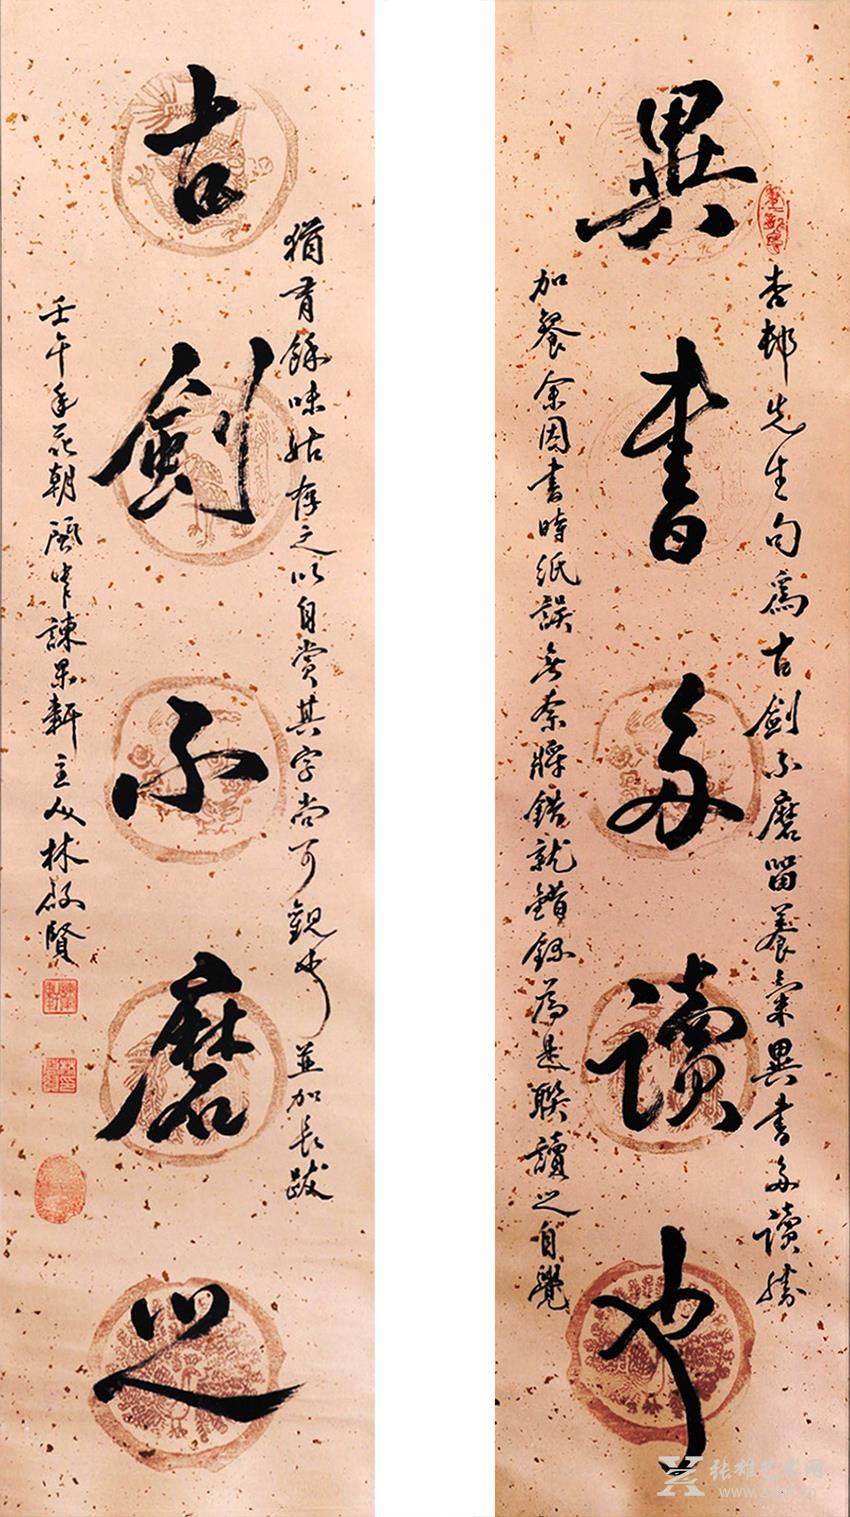 異書多讀也
杏邨先生句為古劍不磨留養氣異書多讀勝
加餐余因書時紙誤無奈將錯就錯錄為是聯讀之自覺
古劍不磨之
猶有餘味姑存之以自賞其字尚可觀也 並加長跋
壬午年花朝諫果軒主人林啟賢
张雄艺术网